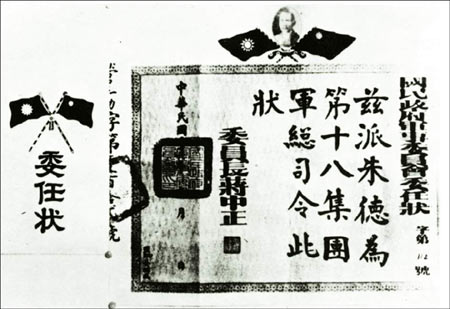 國民政府軍事委員會委任狀
字第 號
茲派朱德為
第十八集團
軍總司令此
狀
委員長蔣中正
中華民國 月
委任状